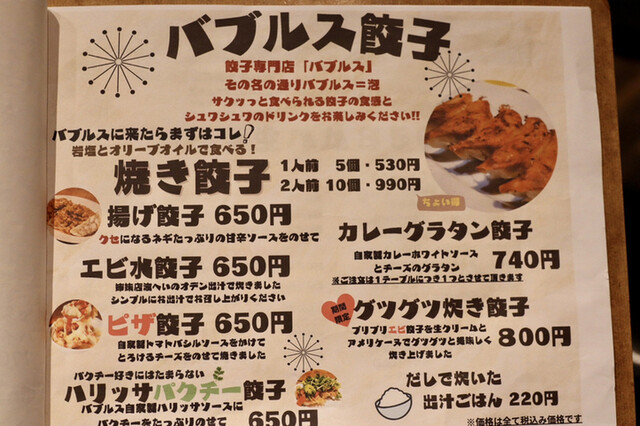 バブルス餃子
餃子専門店「バブルス」
その名の通りバブルス=泡
サクッっと食べられる餃子の食感と
シュワシュワのドリンクをお楽しみください!!
バブルスに来たらまずはコレ!
岩塩とオリーブオイルで食べる!
焼き餃子 1人前 5個・530円
2人前 10個・990円
ちょい辛
揚げ餃子 650円
クセになるネギたっぷりの甘辛ソースをのせて
エビ水餃子 650円
姉妹店波へいのオデン出汁で炊きました
シンプルにお出汁でお召し上がりください
ピザ餃子 650円
自家製トマトバジルソースをかけて
とろけるチーズをのせて焼きました
パクチー好きにはたまらない
ハリッサパクチー餃子
バブルス自家製ハリッサソースに
パクチーをたっぷりのせて 650円
カレーグラタン餃子
自家製カレーホワイトソース
とチーズのグラタン 740円
※ご注文は1テーブルにつき1つとさせて頂きます
期間限定
グツグツ炊き餃子
プリプリエビ餃子を生クリームと
アメリケーヌでグツグツと美味しく
炊き上げました 800円
だしで炊いた
出汁ごはん 220円
※価格は全て税込み価格です